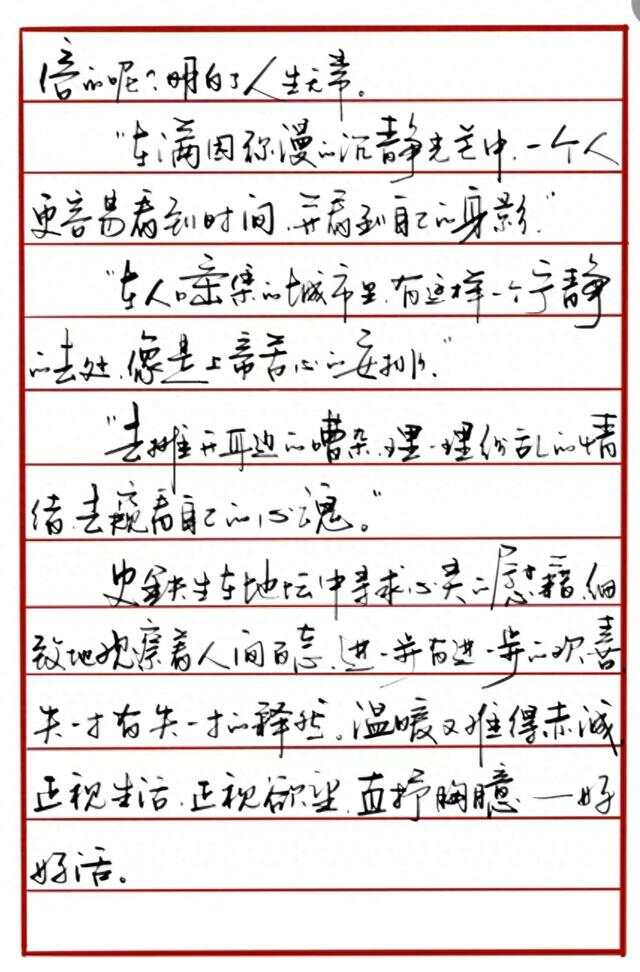 倍的呢？明白了人生无常。
“在满园弥漫的沉静光芒中，一个人
更容易看到时间，并看到自己的身影”
“在人口密集的城市里，有这样一个宁静
的去处，像是上帝苦心的安排。”
“去推开耳边的嘈杂理一理纷乱的情
绪，去窥看自己的心魂。”
史铁生在地坛中寻求心灵的慰藉，细
致地观察着人间百态，进一步有进一步的欢喜
失一才有失一才的释然。温暖又难得赤诚
正视生活，正视欲望，直抒胸臆——好
好活。